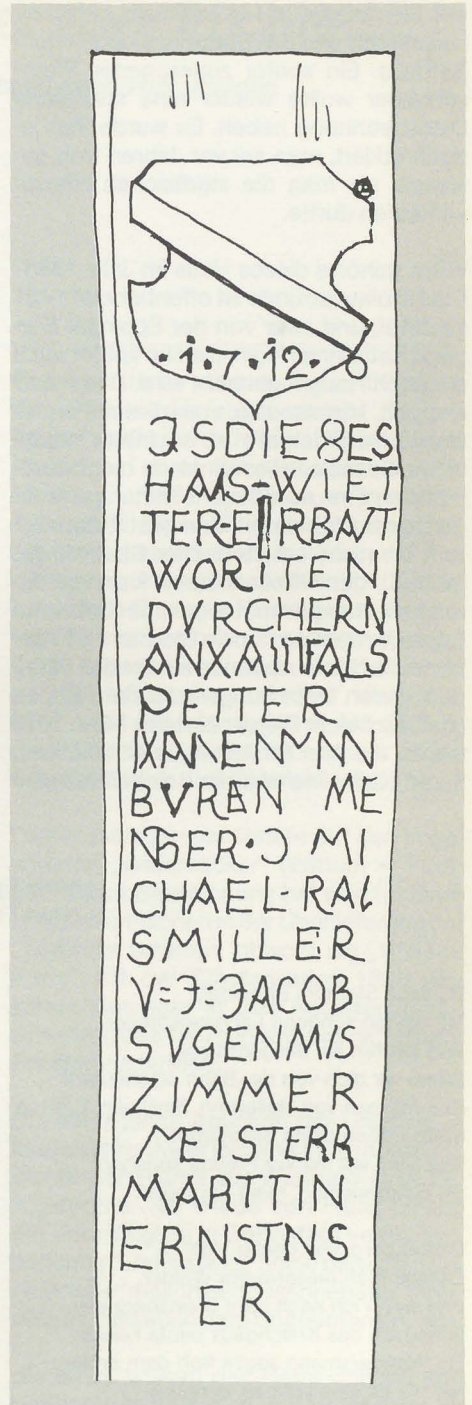 ·1·7·12·
JSDIE8ES
HAAS=WIET
TER-E RBAVT
WORITEN
DVRCHERN
PETTER
BVREN ME
NGER·Ɔ MI
CHAEL RAL
SMILLER
V=J=JACOB
SVGENMIS
ZIMMER
MEISTERR
MARTTIN
ERNSTNS
ER